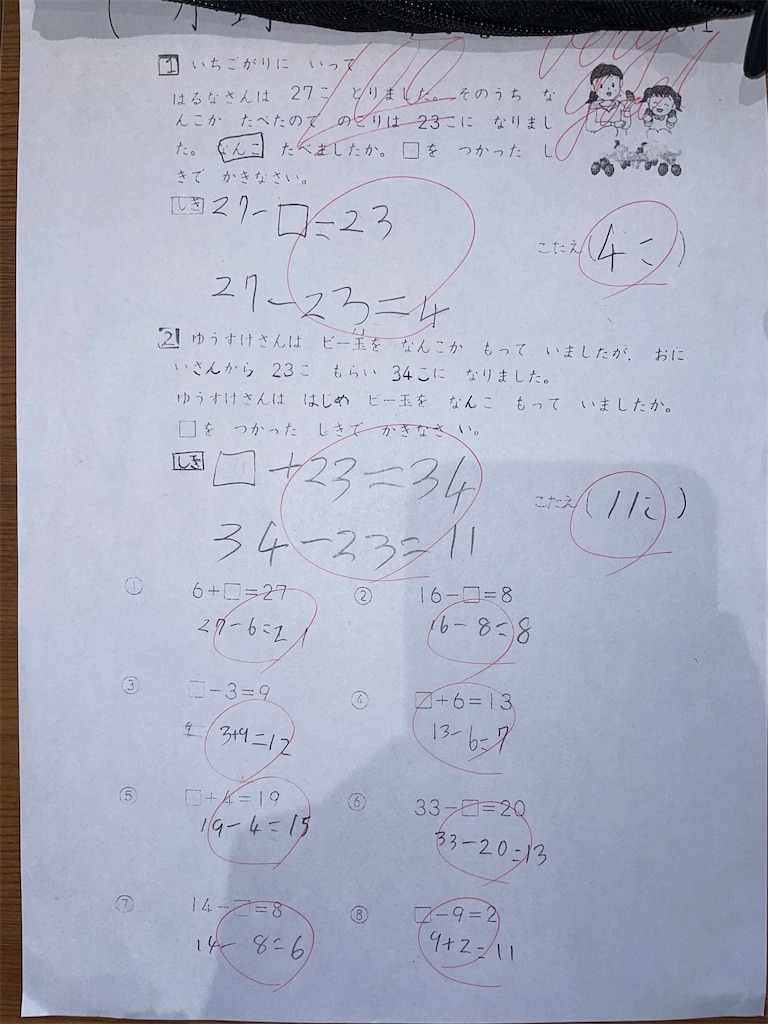 100 very good
1 いちごがりに いって
はるなさんは 27こ とりました。そのうち な
んこか たべたので のこりは 23こに なりまし
た。 なんこ たべましたか。□を つかった し
きで かきなさい。
しき 27-□=23
こたえ(4こ)
27-23=4
2 ゆうすけさんは ビー玉を なんこか もって いましたが、おに
いさんから 23こ もらい 34こに なりました。
ゆうすけさんは はじめ ビー玉を なんこ もって いましたか。
□を つかった しきで かきなさい。
しき □+23=34
こたえ(11こ)
34-23=11
① 6+□=27 ② 16-□=8
27-6=21 16-8=8
③ □-3=9 ④ □+6=13
3+9=12 13-6=7
⑤ □+4=19 ⑥ 33-□=20
19-4=15 33-20=13
⑦ 14-□=8 ⑧ □-9=2
14-8=6 9+2=11